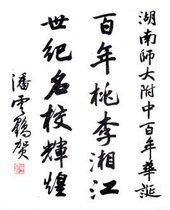 湖南師大附中百年華誕
百年桃李湘江
世紀名校輝煌
潘雲鶴賀